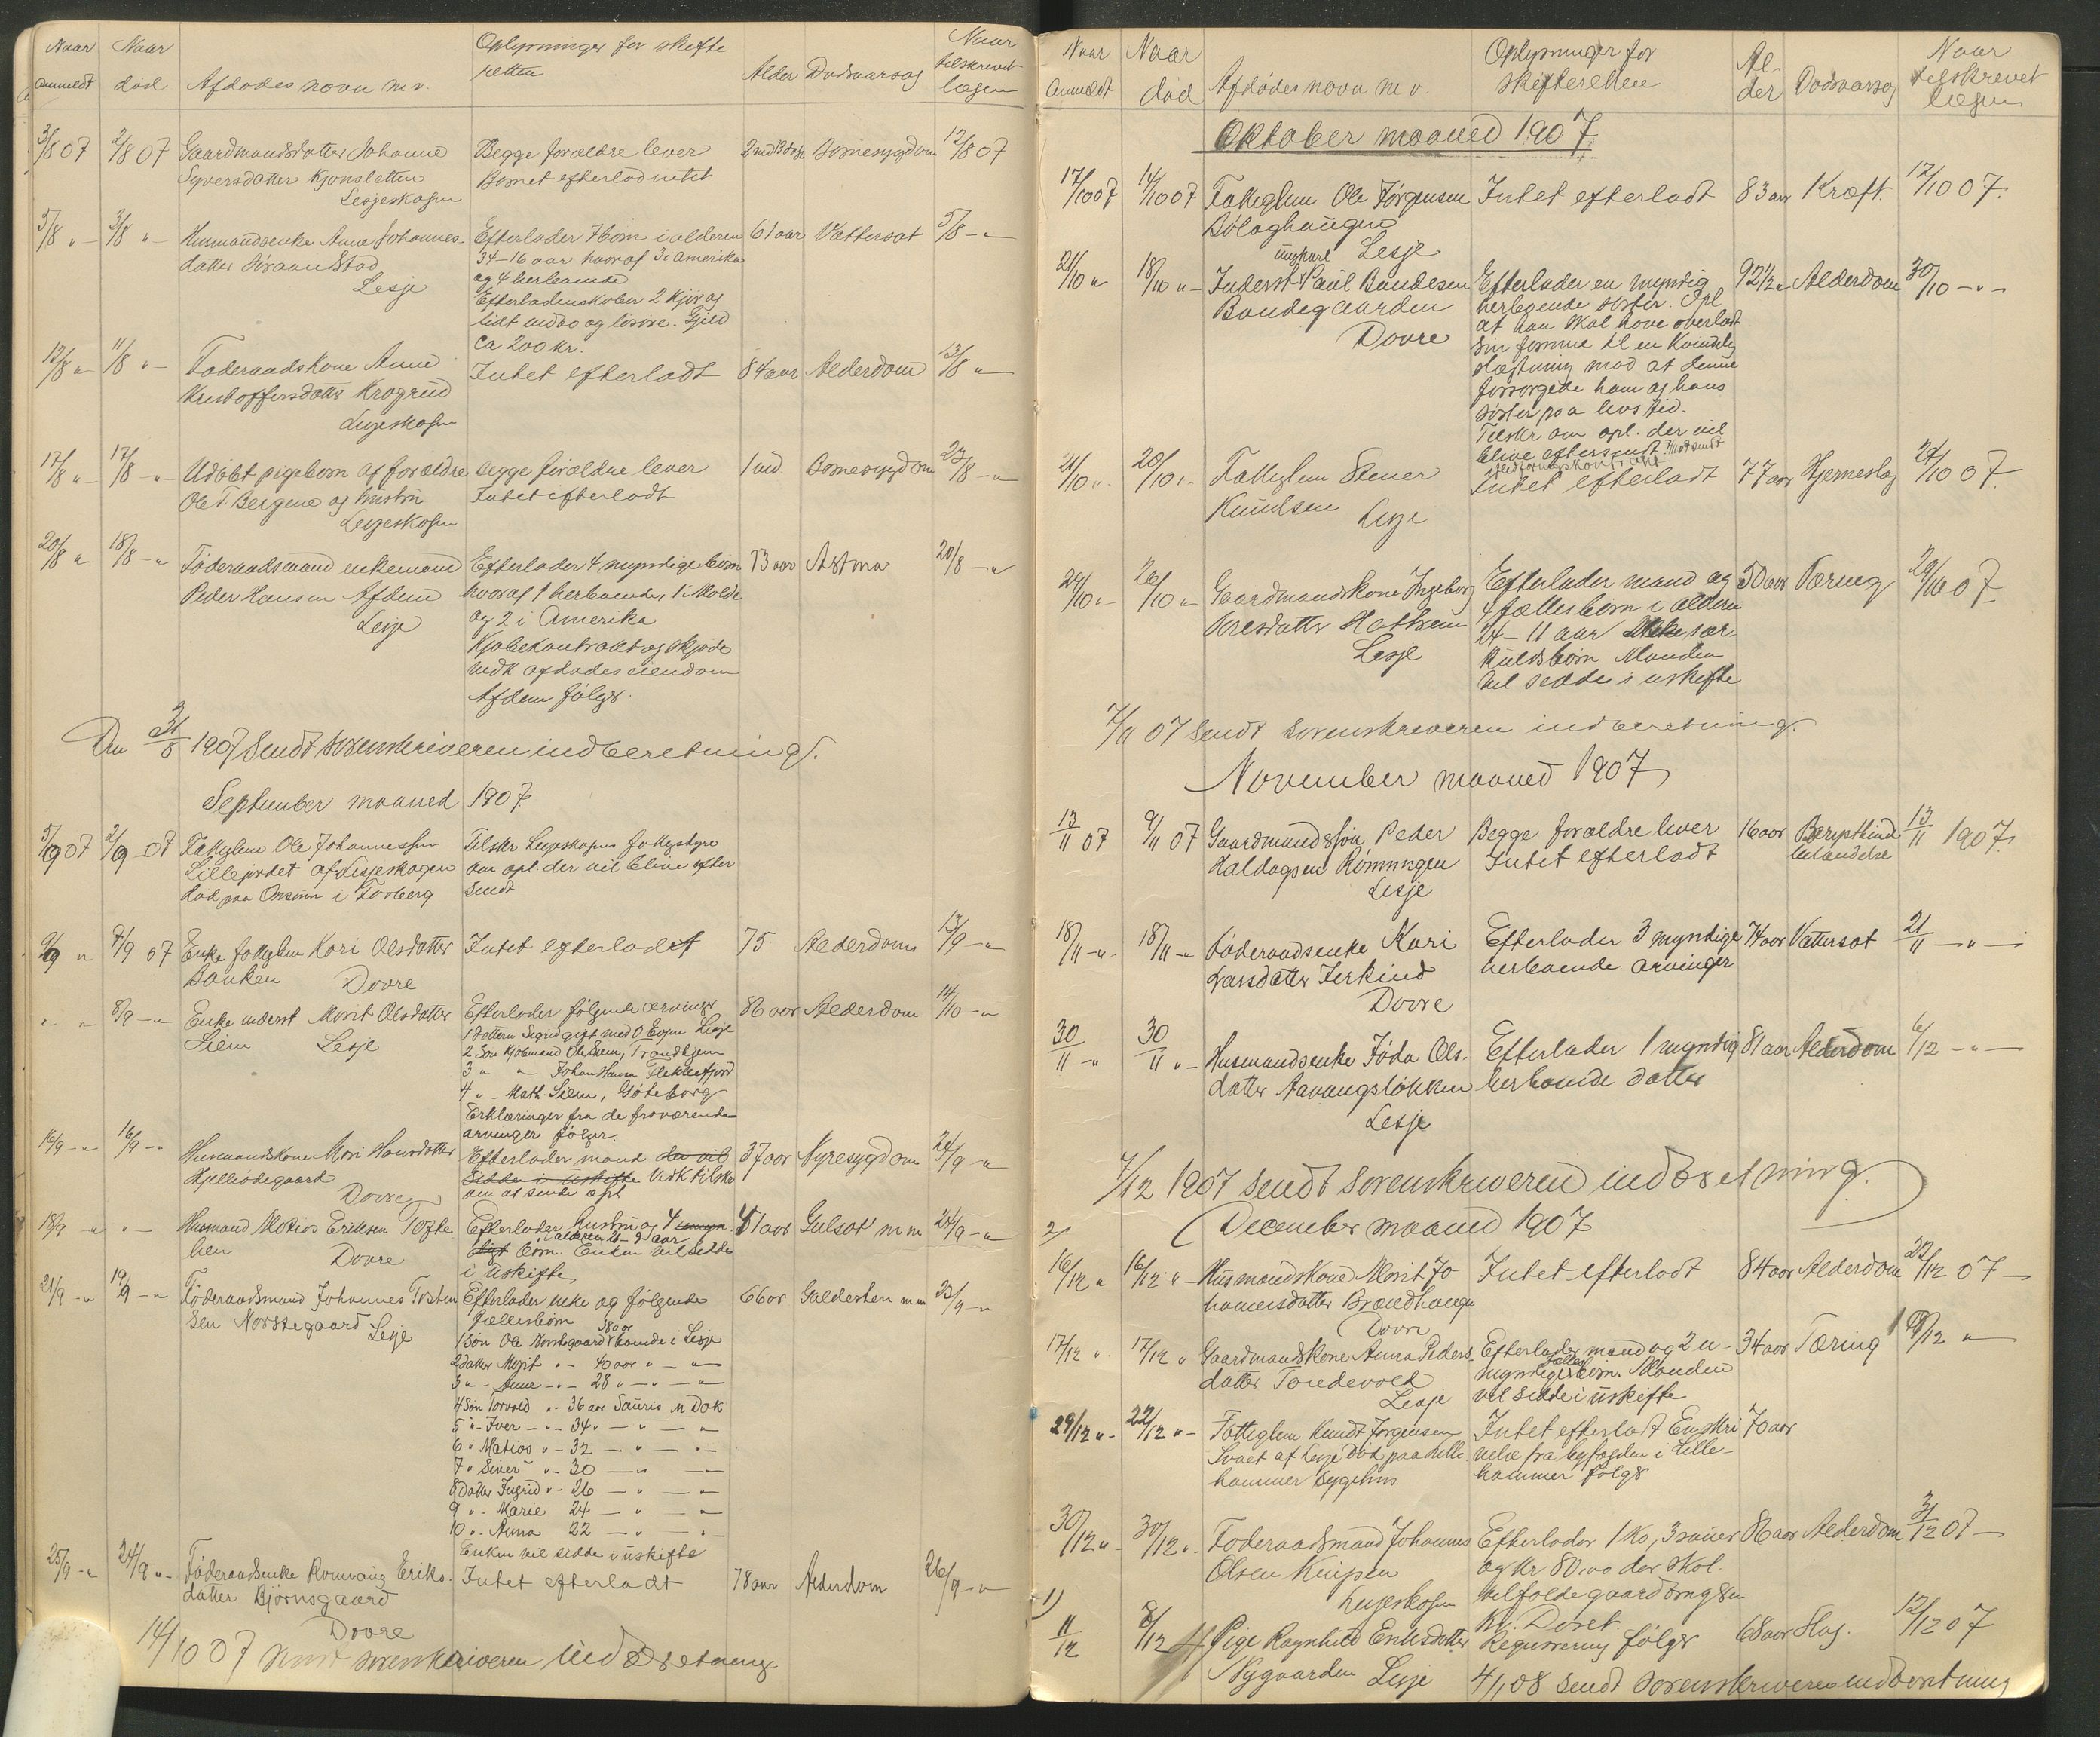 Naar anmeldt | Naar död | Afdødes navn m.v. | Oplysninger for skifteretten | Alder | Dødsaarsag | Naar tilskrevet lægen
3/8 07 | 2/8 07 | Gaardmandsdatter Johanne | Begge forældre lever | 2 md | Barnesygdom | 12/8 07
Syversdatter Kjønsletten | Barnet efterlod intet
Lesjeskogen
5/8 " - | 3/8 " - | Husmandsenke Anne Johannes- | Efterlader 7 børn i alderen | 61 aar | Vattersot | 5/8 - "
datter | 34-16 aar hvoraf 3 i Amerika
Lesje | og 4 herboende
Efterladenskaber 2 kjør og
lidt indbo og løsøre. Gjeld
ca 200 kr.
12/8 " | 11/8 " - | Føderaadskone Anne | Intet efterladt | 84 aar | Alderdom | 13/8 "
Kristoffersdatter Krogrud
Lesjeskogen
17/8 " - | 17/8 - " | Udøbt pigebarn af forældre | Begge forældre lever | 1 md. | Barnesygdom | 23/8 - "
Ole T. Bergene og hustru | Intet efterladt
Lesjeskogen
20/8 " | 18/8 - " | Føderaadsmand enkemand | Efterlader 4 myndige børn | 73 aar | Astma | 20/8 - "
Peder Hansen Afdem | hvoraf 1 herboende, 1 i Molde
Lesje | og 2 i Amerika
Kjøbekontrakt og skjøde
vedk afdødes eiendom
Afdem følger.
Den 31/8 1907 Sendt sorenskriveren indberetning.
September maaned 1907.
5/9 07 | 2/9 07 | Fattiglem Ole Johannessen | Tilskr Lesjeskogens fattigstyre
Lillejordet af Lesjeskogen | om opl. der vil blive efter
død paa Onsum i Faaberg | sendt
9/9 " | 7/9 07 | Enke fattiglem Kari Olsdatter | Intet efterladt | 75 | Alderdom | 13/9 - "
Banken Dovre
" " | 8/9 - " | Enke inderst Marit Olsdatter | Efterlader følgende arvinger | 86 aar | Alderdom | 14/10 - "
Siem Lesje | 1 dottern Sigrid gift med O. Lesje
2 Søn Kjøbmand Ole Siem, Trondhjem
3 " " Johan Hansen Flekkefjord
4 " - Math. Siem, Göteborg
Erklæringer fra de fraværende
arvinger følger.
16/9 - " | 16/9 - " | Husmandskone Mari Hansdatter | Efterlader mand der vil | 37 aar | Nyresygdom | 24/9 - "
Hjelleødegaard | sidde i uskifte Vedk tilskr
Dovre | om at sende opl
18/9 - " | " - | Husmand Matias Eriksen Tofte | Efterlader hustru og 4 umyn- | 41 aar | Gulsot m m | 24/9 - "
hen Dovre | digt børn i alderen - 9 aar. Enken vil sidde
i uskifte
21/9 - " | 19/9 - " | Føderaadsmand Johannes Tosten | Efterlader enke og følgende | 66 aar | Galdesten m m | 23/9 - "
sen Norstegaard Lesje | fællesbørn
1 Søn Ole Norstegaard 38 aar boende i Lesje
2 datter Marit " - 40 aar " - "
3 " - Anne - " - 28 " - " - "
4 Søn Torvald " - 36 aar Sauris N Dak
5 " - Iver - " - 34 " - " - "
6 " Matias " - 32 - " - " -
7 " Siver " - 30 - " -
8 Datter Ingrid " - 26 - " - "
9 " - Marie 24 - " - "
10 " - Anna 22 - " - " -
Enken vil sidde i uskifte
25/9 - " | 24/9 " - | Føderaadsenke Ronnaug Eriks- | Intet efterladt | 78 aar | Alderdom | 26/9 - "
datter Bjørnsgaard
Dovre
14/10 07 sendt sorenskriveren indberetning
Naar anmeldt | Naar död | Afdødes navn m v. | Oplysninger for skifteretten | Alder | Dødsaarsag | Naar tilskrevet lægen
Oktober maaned 1907.
17/10 07 | 14/10 07 | Fattiglem Ole Jørgensen | Intet efterladt | 83 aar | Kræft. | 17/10 07.
Bølaghaugen
Lesje
21/10 " | 18/10 " - | Inderst ungkarl Paul Bandesen | Efterlader en myndig | 92½ " | Alderdom | 30/10 - " -
Bandegaarden | herboende søster. Opl
Dovre | at han skal have overladt
sin formue til en kvindelig
slægtning mod at denne
forsørgede ham og hans
søster paa livstid.
Tilskr om opl. der vil
blive eftersendt
21/10 " | 20/10 " | Fattiglem Stener | Intet efterladt | 77 aar | Hjerneslag | 24/10 07.
Knudsen Lesje
29/10 " | 26/10 " | Gaardmandskone Ingeborg | Efterlader mand og | 50 aar | Tæring | 29/10 07
Hattrem | 4 fællesbørn i alderen
Lesje | 24-11 aar Ikke sær
kuldsbørn Manden
vil sidde i uskifte
7/11 07 sendt sorenskriveren indberetning.
November maaned 1907
13/11 07 | 9/11 07 | Gaardmandssøn Peder | Begge forældre lever | 16 aar | Brysthinde | 13/11 1907.
Haldogsen Rønningen | Intet efterladt | betændelse
Lesje
18/11 - " - | 18/11 - " | Føderaadsenke Kari | Efterlader 3 myndige | 74 aar | Vattersot | 21/11 - " -
Larsdatter Jerkind | herboende arvinger
Dovre
30/11 - " | 30/11 " - | Husmandsenke Jøda Ols- | Efterlader 1 myndig | 81 aar | Alderdom | 6/12 - " -
datter Aavangsløkken | herboende datter
Lesje
7/12 1907 sendt sorenskriveren indberetning.
2) December maaned 1907
16/12 " | 16/12 " - | Husmandskone Marit Jo | Intet efterladt | 84 aar | Alderdom | 27/12 07 -
hannesdatter Brændhaugen
Dovre
17/12 " | 17/12 " | Gaardmandskone Anna Peders- | Efterlader mand og 2 u- | 34 aar | Tæring | 18/12 "
datter Tordevold | myndige fælles børn. Manden
Lesje | vil sidde i uskifte
29/12 " - | 22/12 " - | Fattiglem Knudt Jørgensen | Intet efterladt Enskri | 70 aar
af Lesje Død paa Lille | velse fra byfogden i Lille-
hammer sygehus | hammer følger
30/12 " - | 30/12 " | Føderaadsmand Johannes | Efterlader 1 ko, 3 sauer | 86 aar | Alderdom | 31/12 07 -
Olsen Knipen | og kr 80.00 der skal
Lesjeskogen | tilfalde gaardbrugeren
1) 11/12 | 8/12 | Pige Ragnhild Eriksdatter | Registrering følger | 68 aar | Slag. | 12/12 07
Nygaarden Lesje | 4/1 08 sendt sorenskriveren indberetning